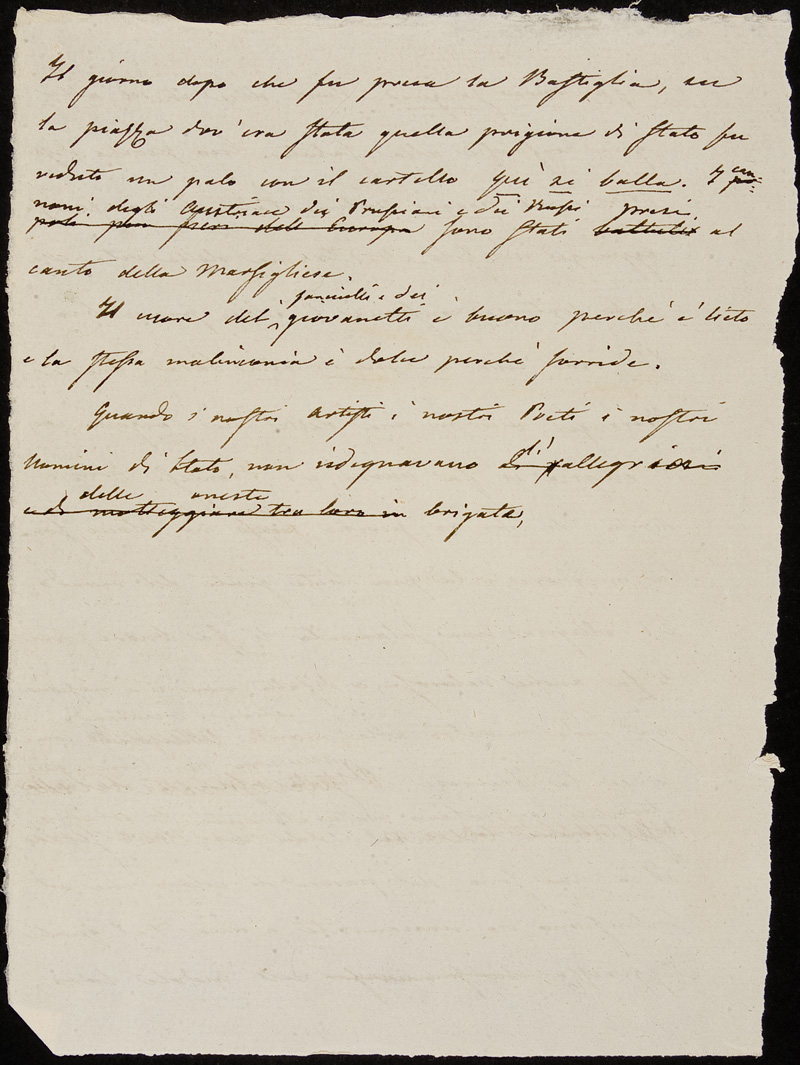 Il giorno dopo che fu presa la Bastiglia, su
la piazza dov'era stata quella prigione di stato fu
veduto un palo con il cartello quì si balla. I can
noni degli Austriaci dei Prussiani e dei Russi presi
sono stati battuti al
canto della Marsigliese.
fanciulli e dei
Il cuore dei giovanetti è buono perchè è lieto
e la stessa malinconia è dolce perchè sorride.
Quando i nostri artisti i nostri Poeti i nostri
Uomini di Stato, non isdegnavano di rallegrarsi
delle oneste
e di motteggiare tra loro in brigata,